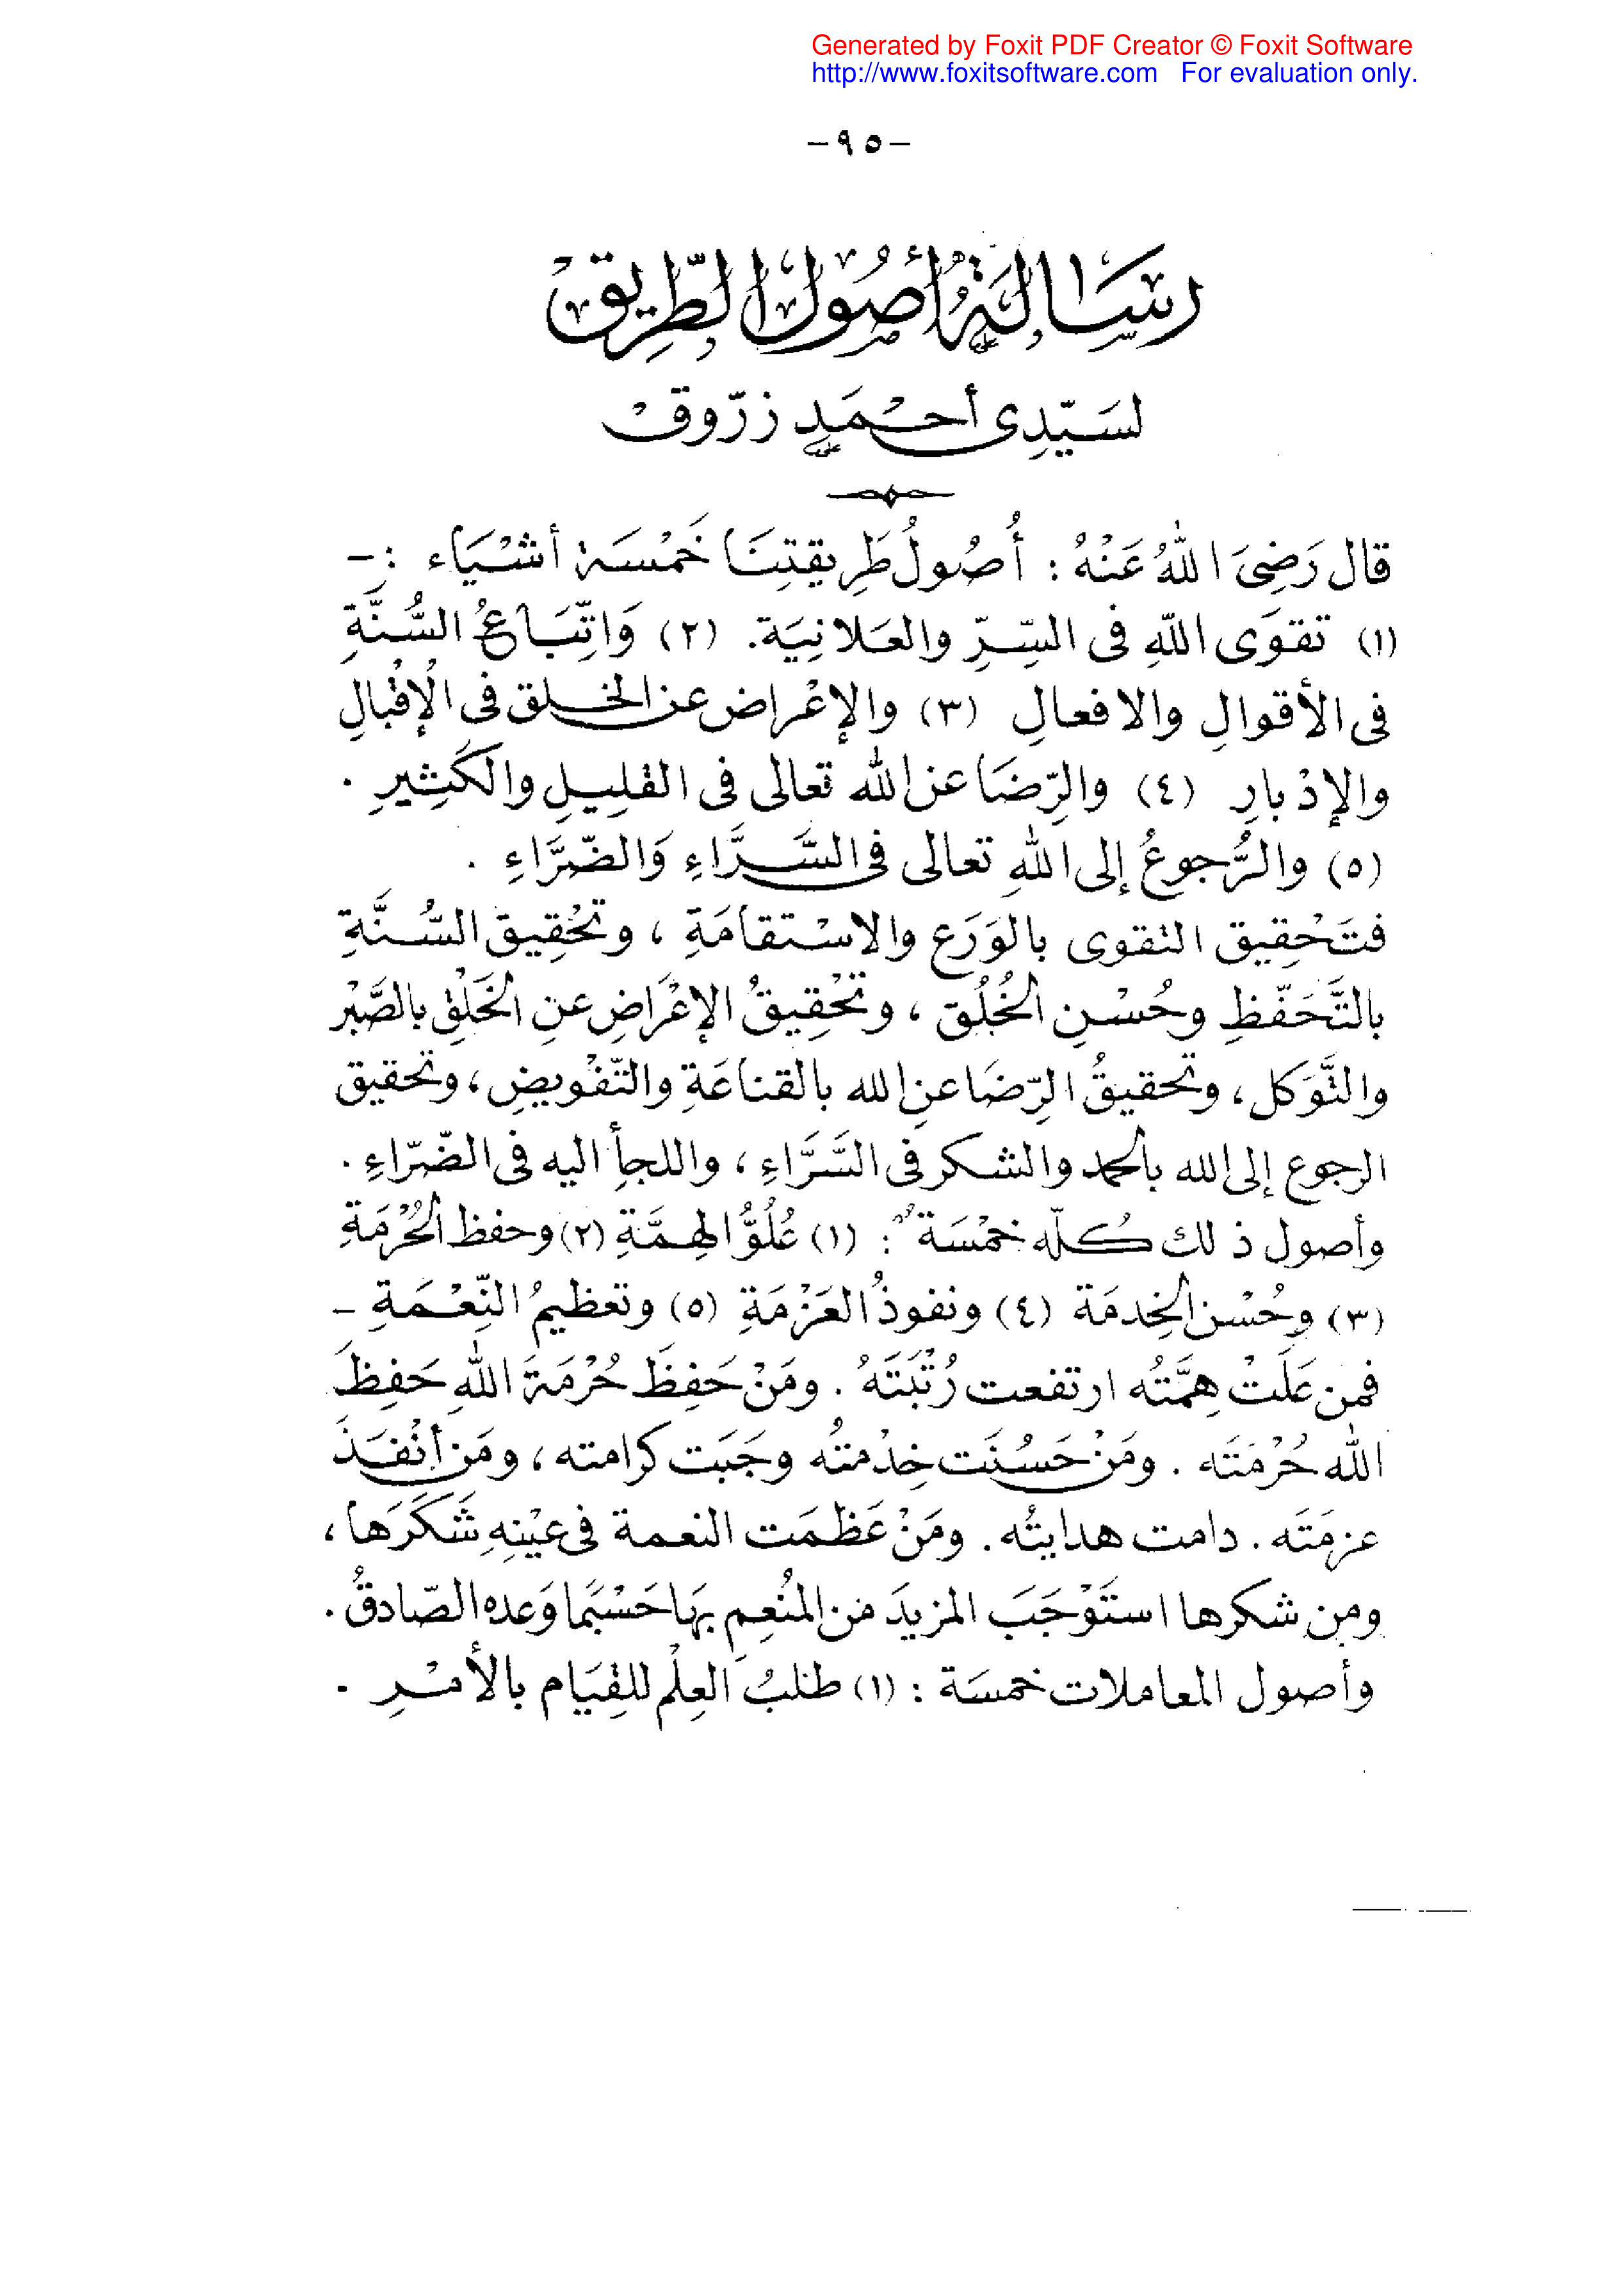 Generated by Foxit PDF Creator © Foxit Software
http://www.foxitsoftware.com For evaluation only.
-٩٥-
رِسَالَةُ أُصُولِ الطَّرِيقْ
لسَيّدِى أحْمَد زرّوقْ
قال رَضِىَ اللهُ عَنْهُ : أُصُولُ طَرِيقتِنَا خَمْسَة أشْيَاء :-
(١) تقوَى اللّهِ فى السِّرِّ والعَلانِيَة. (٢) وَاتِّبَاعُ السُّنَّةِ
فى الأقوالِ والافعالِ (٣) والإعْراض عن الخلق فى الْإقْبالِ
والإدْبارِ (٤) والرِّضَا عن الله تعالى فى القلِيلِ والكَثِيرِ .
(٥) والرُّجوعُ إلى اللهِ تعالى فى السَّرَّاءِ وَالضَّرَّاءِ .
فتَحْقِيق التقوى بالوَرَع والاسْتقامَةِ ، وتحْقِيقَ السُّنَّةِ
بالتَّحَفّظِ وحُسْنِ الخُلُق ، وتحْقِيقُ الإعْرَاضِ عنِ الخَلْقِ بالصَّبْر
والتَّوَكل ، وتحقيقُ الرِّضَا عنِ الله بالقناعَةِ والتّفْويضِ ، وتحقيق
الرجوع إلى الله بالحمد والشكر فى السَّرَّاءِ ، واللجأِ اليه فى الضّرّاءِ .
وأصول ذلك كُلّه خمْسَة : (١) عُلُوُّ الهِمَّةِ (٢) وحفظ الحُرْمَةِ
(٣) وحُسْن الخِدمَة (٤) ونفوذُ العَزْمَةِ (٥) وتعظيمُ النِّعْمَةِ -
فمن عَلَتْ هِمَّتُه ارتفعت رُتْبَتَهُ . ومَنْ حَفِظَ حُرْمَةَ اللهِ حَفِظَ
الله حُرْمَتَه . ومَنْ حَسُنَت خِدْمتُه وجَبَت كرامته ، ومَن أنْفَذَ
عزمَتَه . دامت هدايتُه . ومَنْ عَظمَت النعمة فى عيْنِهِ شَكَرَها ،
ومن شكرها استَوْجَبَ المزيدَ من المنُعِمِ بهَا حَسْبَما وَعده الصّادقُ .
وأصول المعاملات خمسَة : (١) طلبُ العِلْم للقِيَام بالأمْرِ .